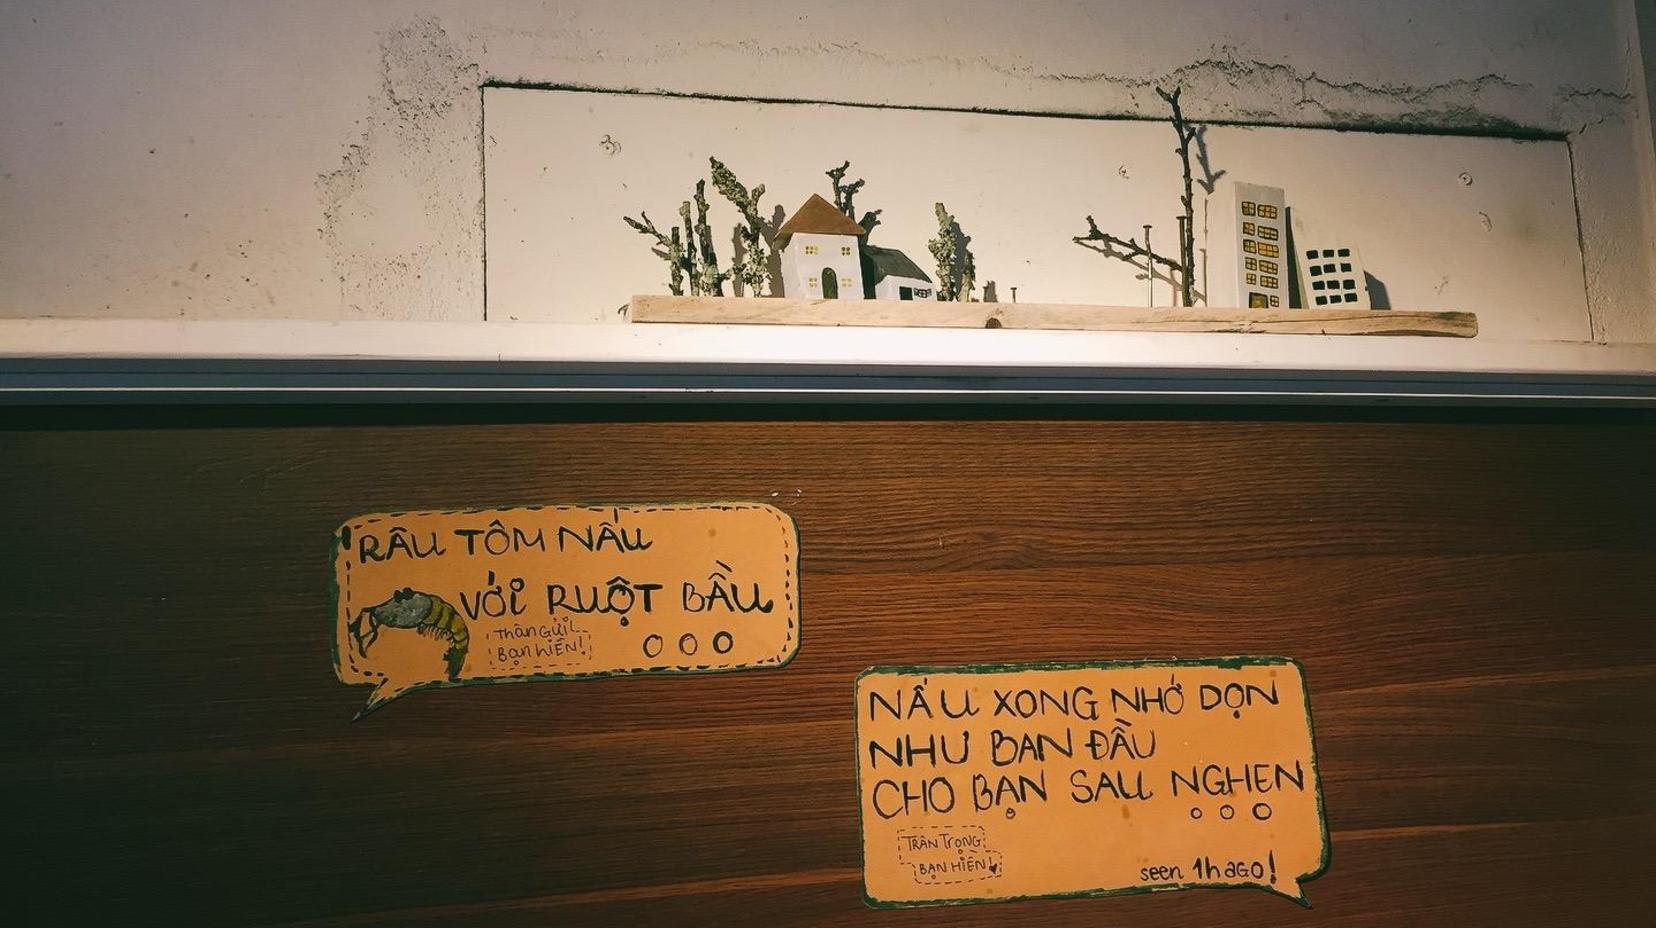 RÂU TÔM NẤU
VỚI RUỘT BẦU
Thân Gửi
Bạn HIỀN!
NẤU XONG NHỚ DỌN
NHƯ BAN ĐẦU
CHO BẠN SAU NGHEN
TRÂN TRỌNG
BẠN HIỀN!
seen 1h aGO!